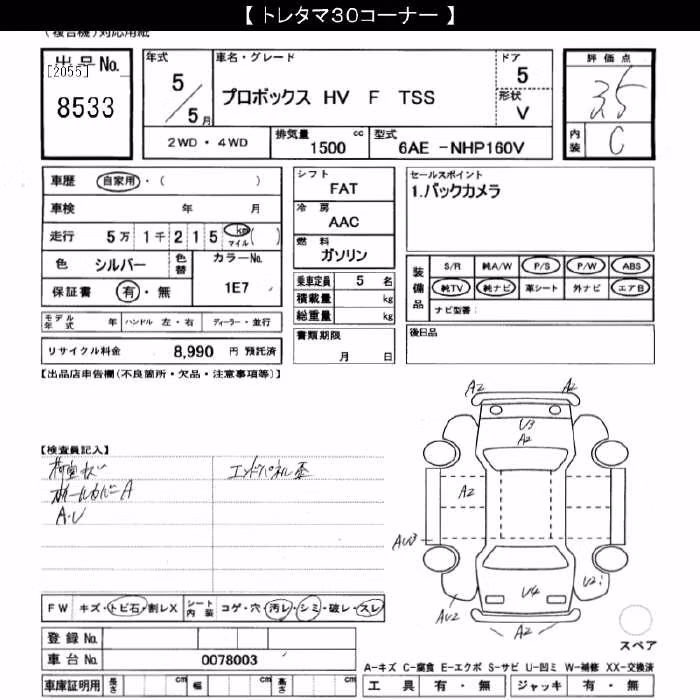 【 トレタマ３０コーナー 】
(複合機)対応用紙
出品No.
[2055]
8533
年式 5/5月
車名・グレード
プロボックス HV F TSS
ドア 5
形状 V
評価点
3.5
内装 C
2WD・4WD
排気量 1500 cc
型式 6AE -NHP160V
車歴 自家用・( )
車検 年 月
走行 5万 1千 2 1 5 km マイル ( )
色 シルバー 色替 カラーNo. 1E7
保証書 有・無
モデル年式 年 ハンドル 左・右 ディーラー・並行
リサイクル料金 8,990 円 預託済
シフト
FAT
冷房
AAC
燃料
ガソリン
乗車定員 5 名
積載量 kg
総重量 kg
書類期限
月 日
セールスポイント
1.バックカメラ
装備品
S/R 純A/W P/S P/W ABS
純TV 純ナビ 革シート 外ナビ エアB
ナビ型番：
後日品
【出品店申告欄(不良箇所・欠品・注意事項等)】
【検査員記入】
荷室キズ
ホイールカバーA
A・U
エンドパネル歪
A2 A2
U3
A2
A2
AU3
U4
U2
AU2
A2
スペア
FW キズ・トビ石・割レX シート内装 コゲ・穴・汚レ・シミ・破レ・スレ
登録No.
車台No. 0078003
車庫証明用 長さ cm 幅 cm 高さ cm
A-キズ C-腐食 E-エクボ S-サビ U-凹ミ W-補修 XX-交換済
工具 有・無 ジャッキ 有・無